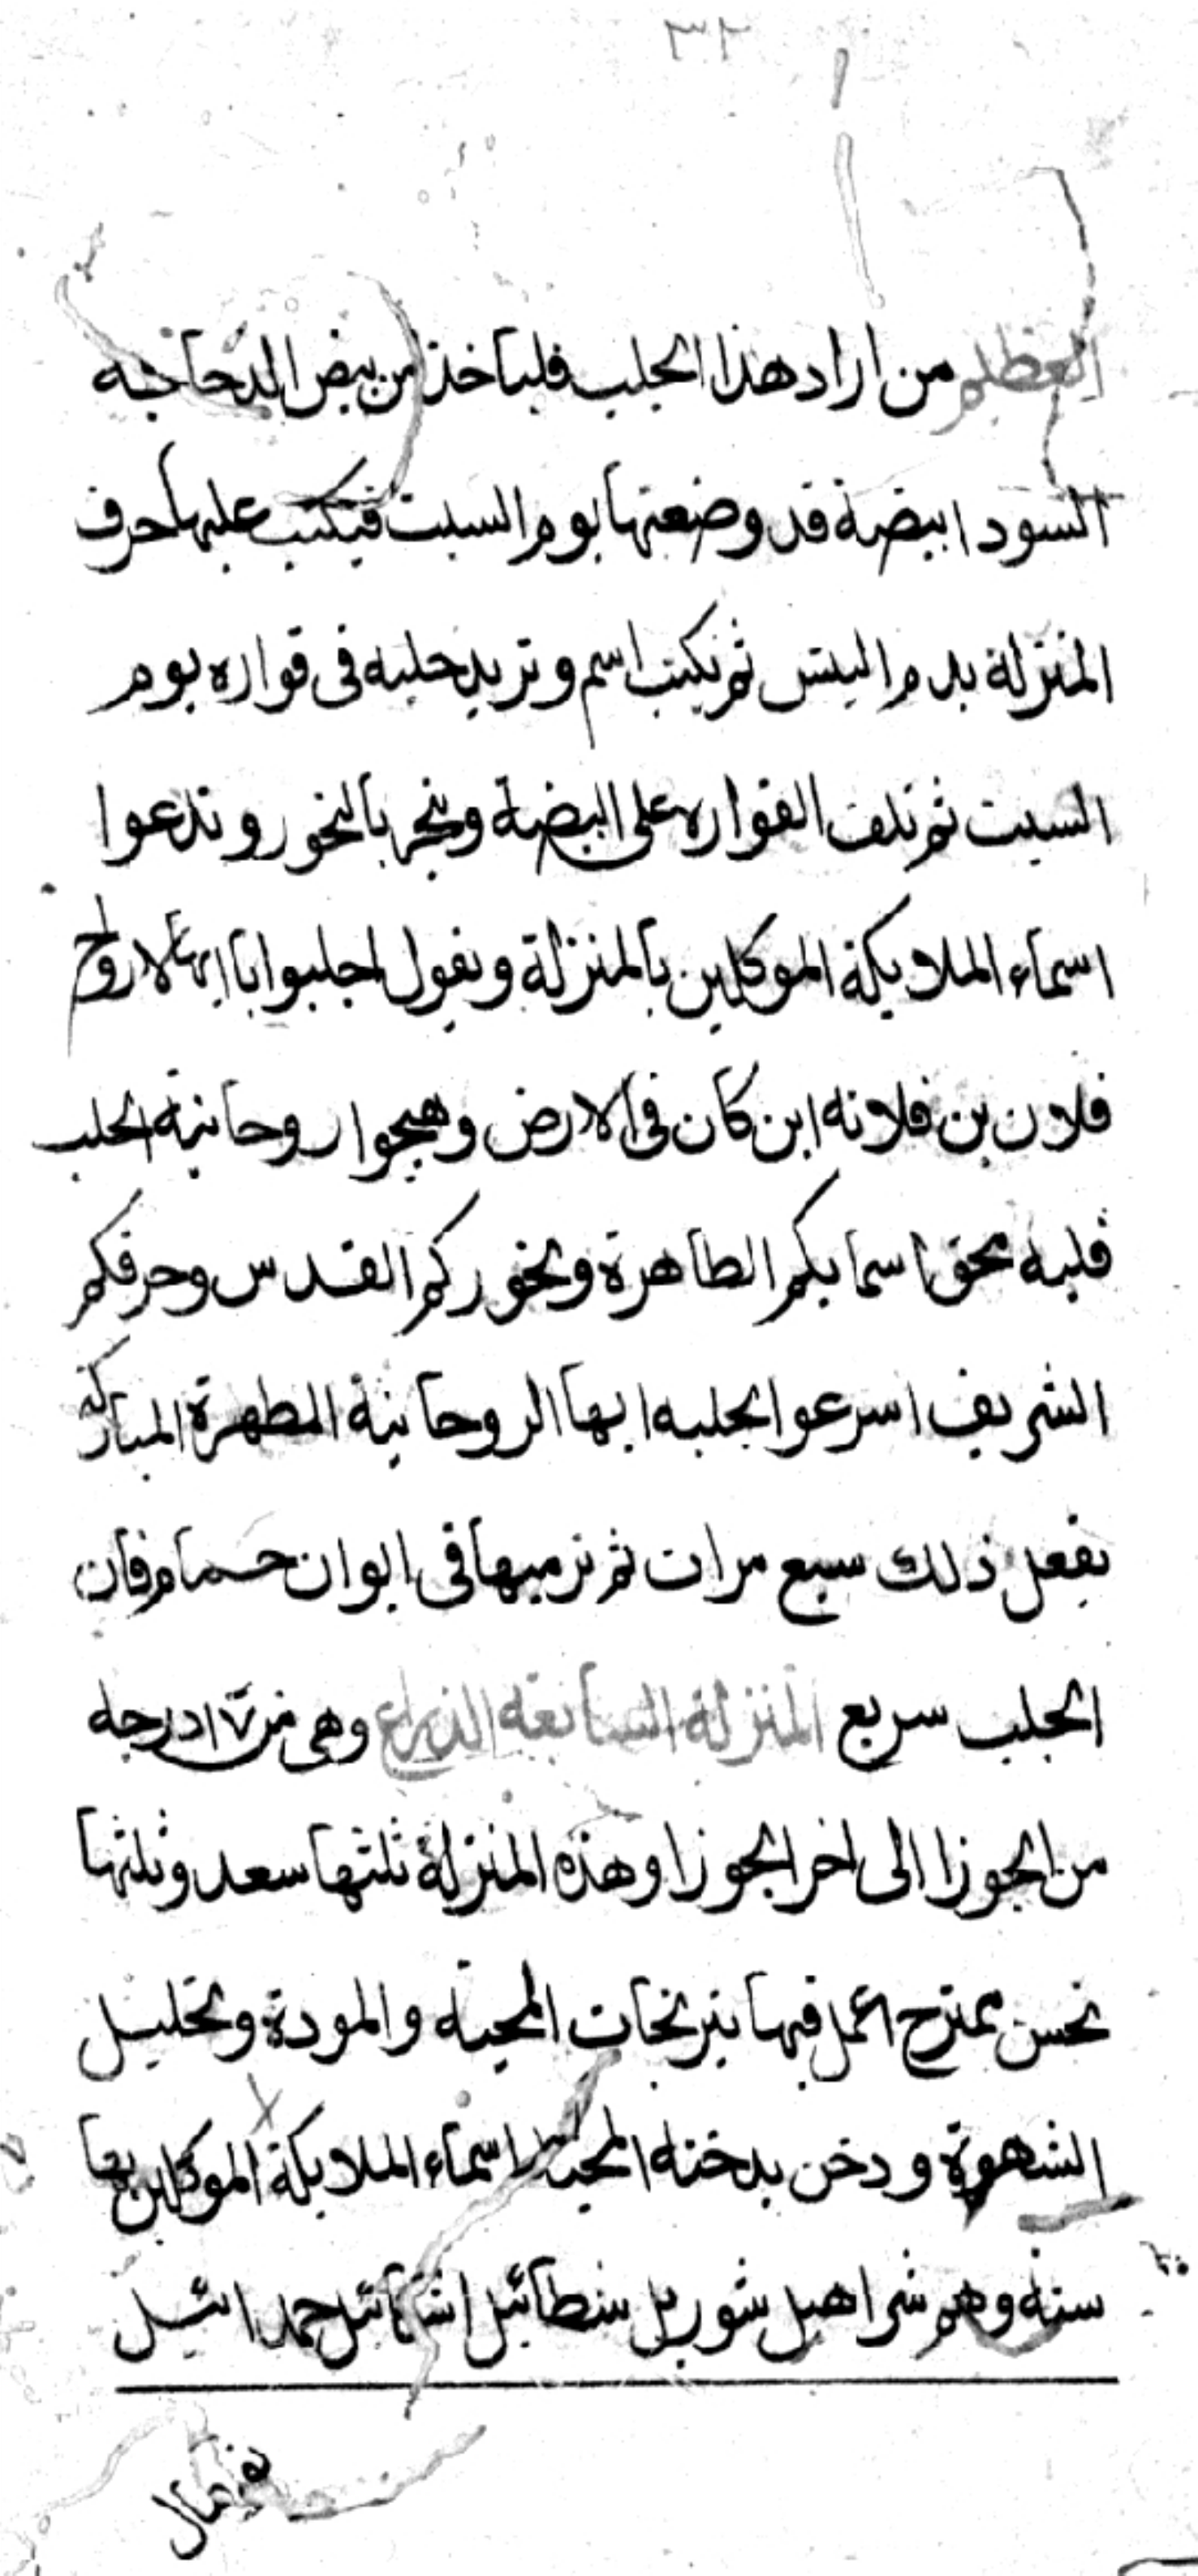 ٣٢
العظيم من اراد هذا الجلب فلياخذ من بيض الدجاجه
السودا بيضة قد وضعتها يوم السبت فيكتب عليها احرف
المنزلة بدم التيس ثم يكتب اسم وتريد جلبه فى قواره يوم
السبت ثم تلف القواره على البيضة وبخر بالبخور وتدعوا
اسماء الملايكة الموكلين بالمنزلة وتقول اجلبوا يا ايها الارواح
فلان بن فلانه اين كان فى الارض وهيجوا روحانية الجلب
قلبه بحق اسمايكم الطاهرة وبخوركم القدس وحرفكم
الشريف اسرعوا بجلبه ايها الروحانية المطهرة المباركة
تفعل ذلك سبع مرات ثم ترميها فى ايوان حمام فان
الجلب سريع المنزلة السابعة الذراع وهى من ١٧ درجه
من الجوزا الى اخر الجوزا وهذه المنزلة ثلثها سعد وثلثها
نحس ممتزج اعمل فيها نيرنجات المحبة والمودة وتحليل
الشهوة ودخن بدخنة المحبة اسماء الملايكة الموكلين بها
ستة وهم شراهيل شوريل شطائيل حمدائيل